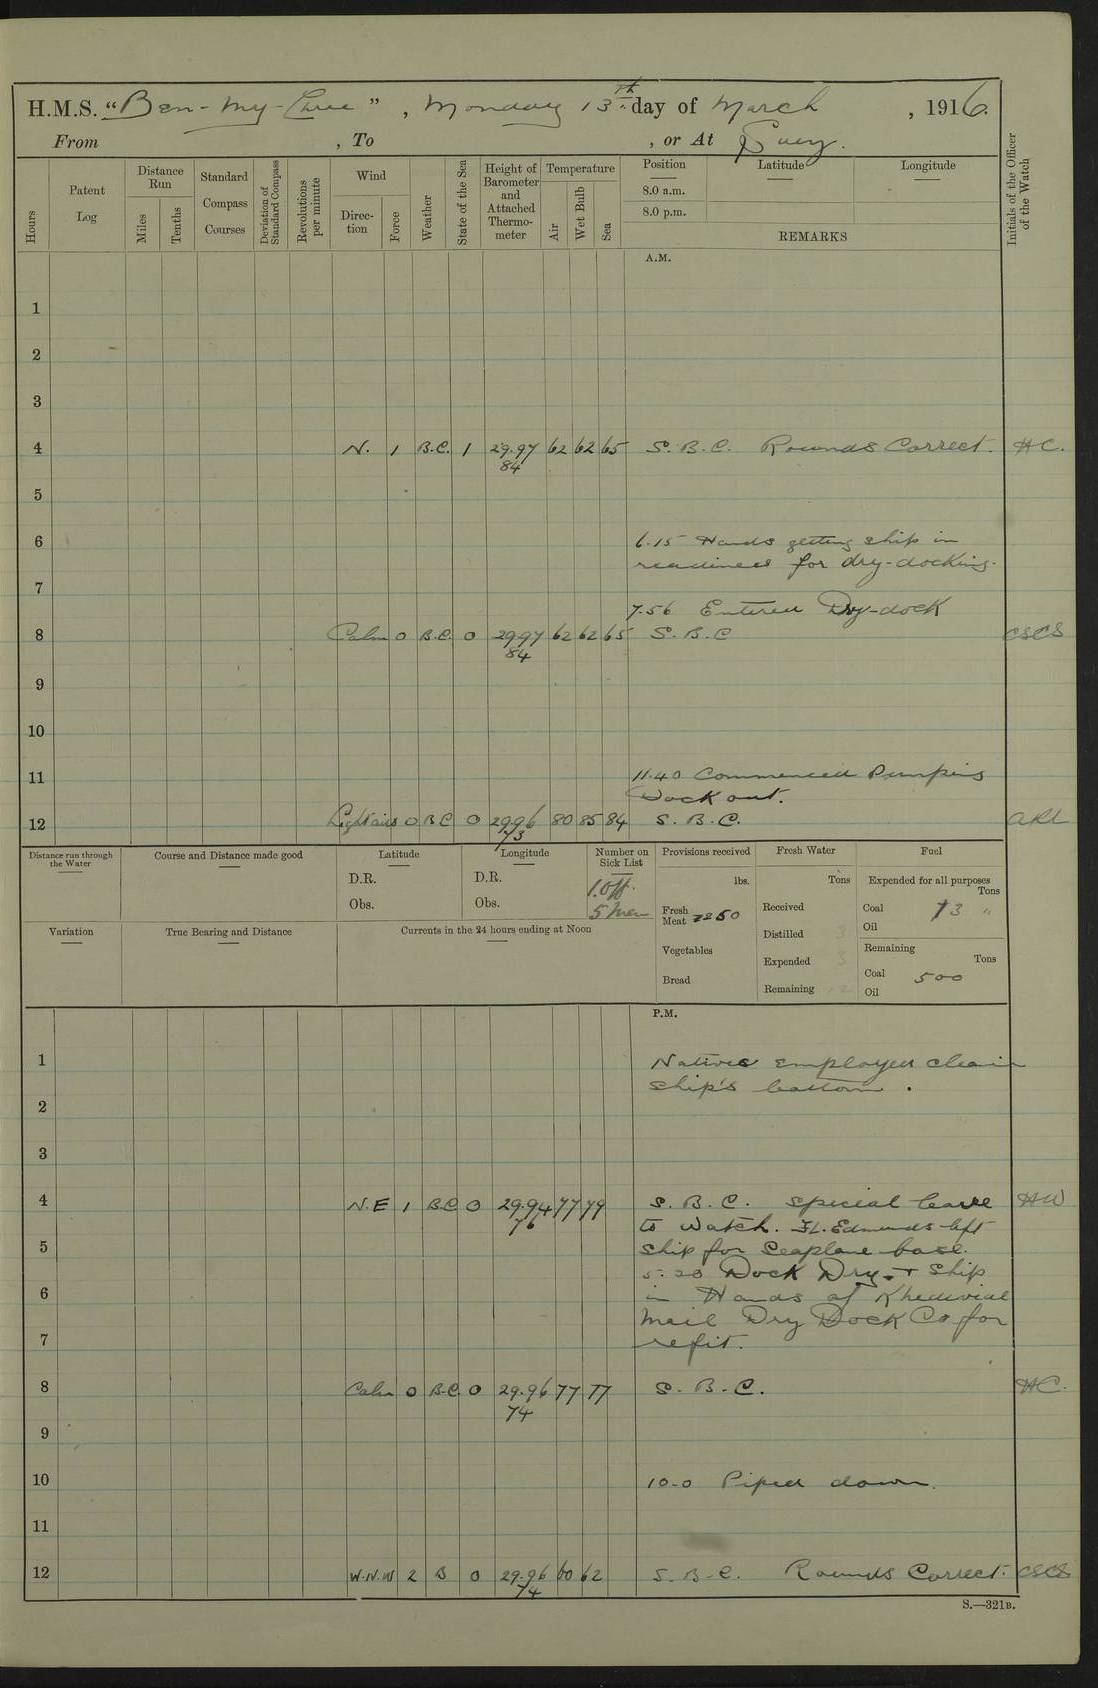 H.M.S. "Ben-my-Chree", Monday 13th day of March, 1916.
From , To , or At Suez.
Hours
Patent Log
Distance Run
Miles
Tenths
Standard Compass Courses
Deviation of Standard Compass
Revolutions per minute
Wind
Direction
Force
Weather
State of the Sea
Height of Barometer and Attached Thermometer
Temperature
Air
Wet Bulb
Sea
Position Latitude Longitude
8.0 a.m.
8.0 p.m.
REMARKS
Initials of the Officer of the Watch
A.M.
1
2
3
4 N. 1 B.C. 1 29.97 62 62 65 S.B.C. Rounds Correct. HC.
84
5
6 6.15 Hands getting ship in
readiness for dry-docking.
7
7.56 Entered Dry-dock
8 Calm 0 B.C. 0 29.97 62 62 65 S.B.C CSCS
84
9
10
11 11.40 Commenced Pumping
Dock out.
12 Light airs 0 BC 0 29.96 80 85 84 S.B.C.
73
Distance run through the Water
Course and Distance made good
Latitude
D.R.
Obs.
Longitude
D.R.
Obs.
Number on Sick List
1 Off.
5 Men
Provisions received
lbs.
Fresh Meat 2250
Vegetables
Bread
Fresh Water
Tons
Received
Distilled
Expended
Remaining
Fuel
Expended for all purposes
Tons
Coal 13 "
Oil
Remaining
Tons
Coal 500
Oil
Variation
True Bearing and Distance
Currents in the 24 hours ending at Noon
P.M.
1 Natives employed cleaning
ship's bottom.
2
3
4 N.E 1 B.C. 0 29.94 77 79 S.B.C. Special leave HW
76 to Watch. FL. Edmunds left
5 ship for Seaplane base.
5.20 Dock Dry. + Ship
6 in Hands of Khedivial
Mail Dry Dock Co for
7 refit.
8 Calm 0 B.C. 0 29.96 77 77 S.B.C. HC.
74
9
10 10.0 Piped down.
11
12 W.N.W 2 B 0 29.96 60 62 S.B.C. Rounds Correct. CSCS
74
S.—321B.